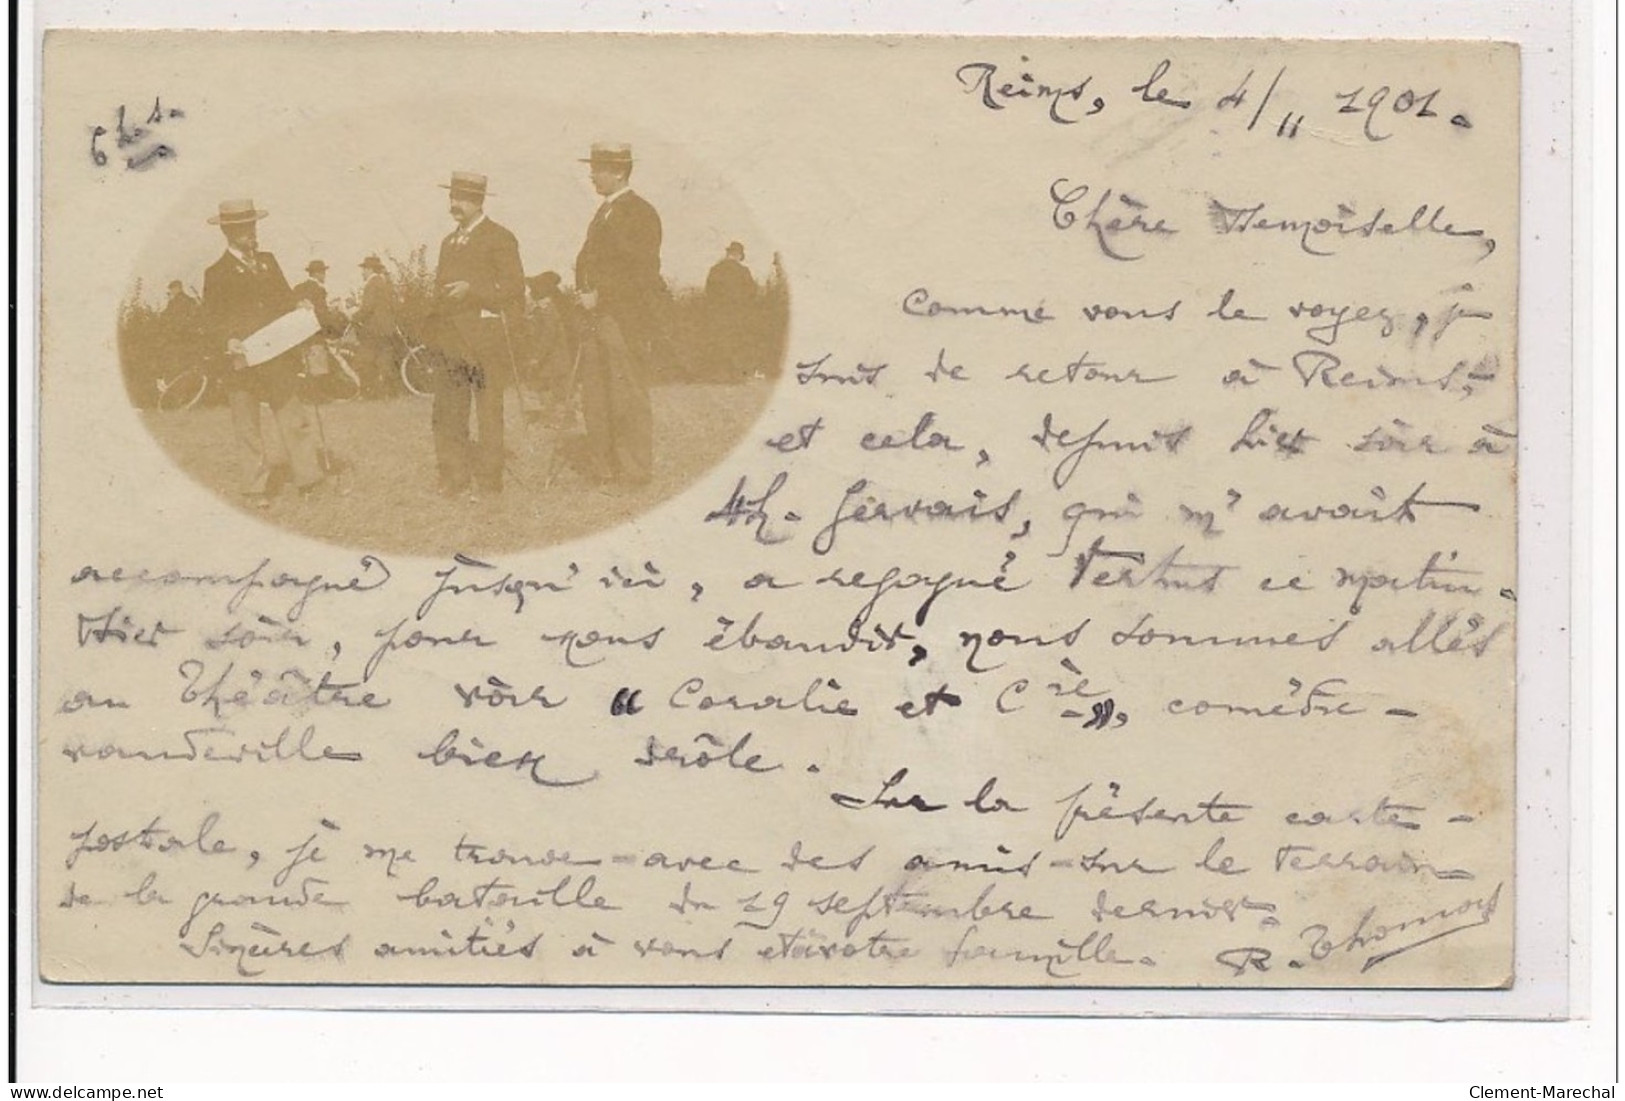 6 h. s.
Reims, le 4/11 1901.
Chère Demoiselle,
Comme vous le voyez, je
suis de retour à Reims,
et cela, depuis hier soir à
4h. Gervais, qui m'avait
accompagné jusqu'ici, a regagné Vertus ce matin.
Hier soir, pour nous ébaudir, nous sommes allés
au Théâtre voir "Coralie et Cie", comédie-
vaudeville bien drôle.
Sur la présente carte-
postale, je me trouve - avec des amis - sur le terrain
de la grande bataille du 19 septembre dernier.
Sincères amitiés à vous et à votre famille. R. Thomas
delcampe.net
Clement-Marechal